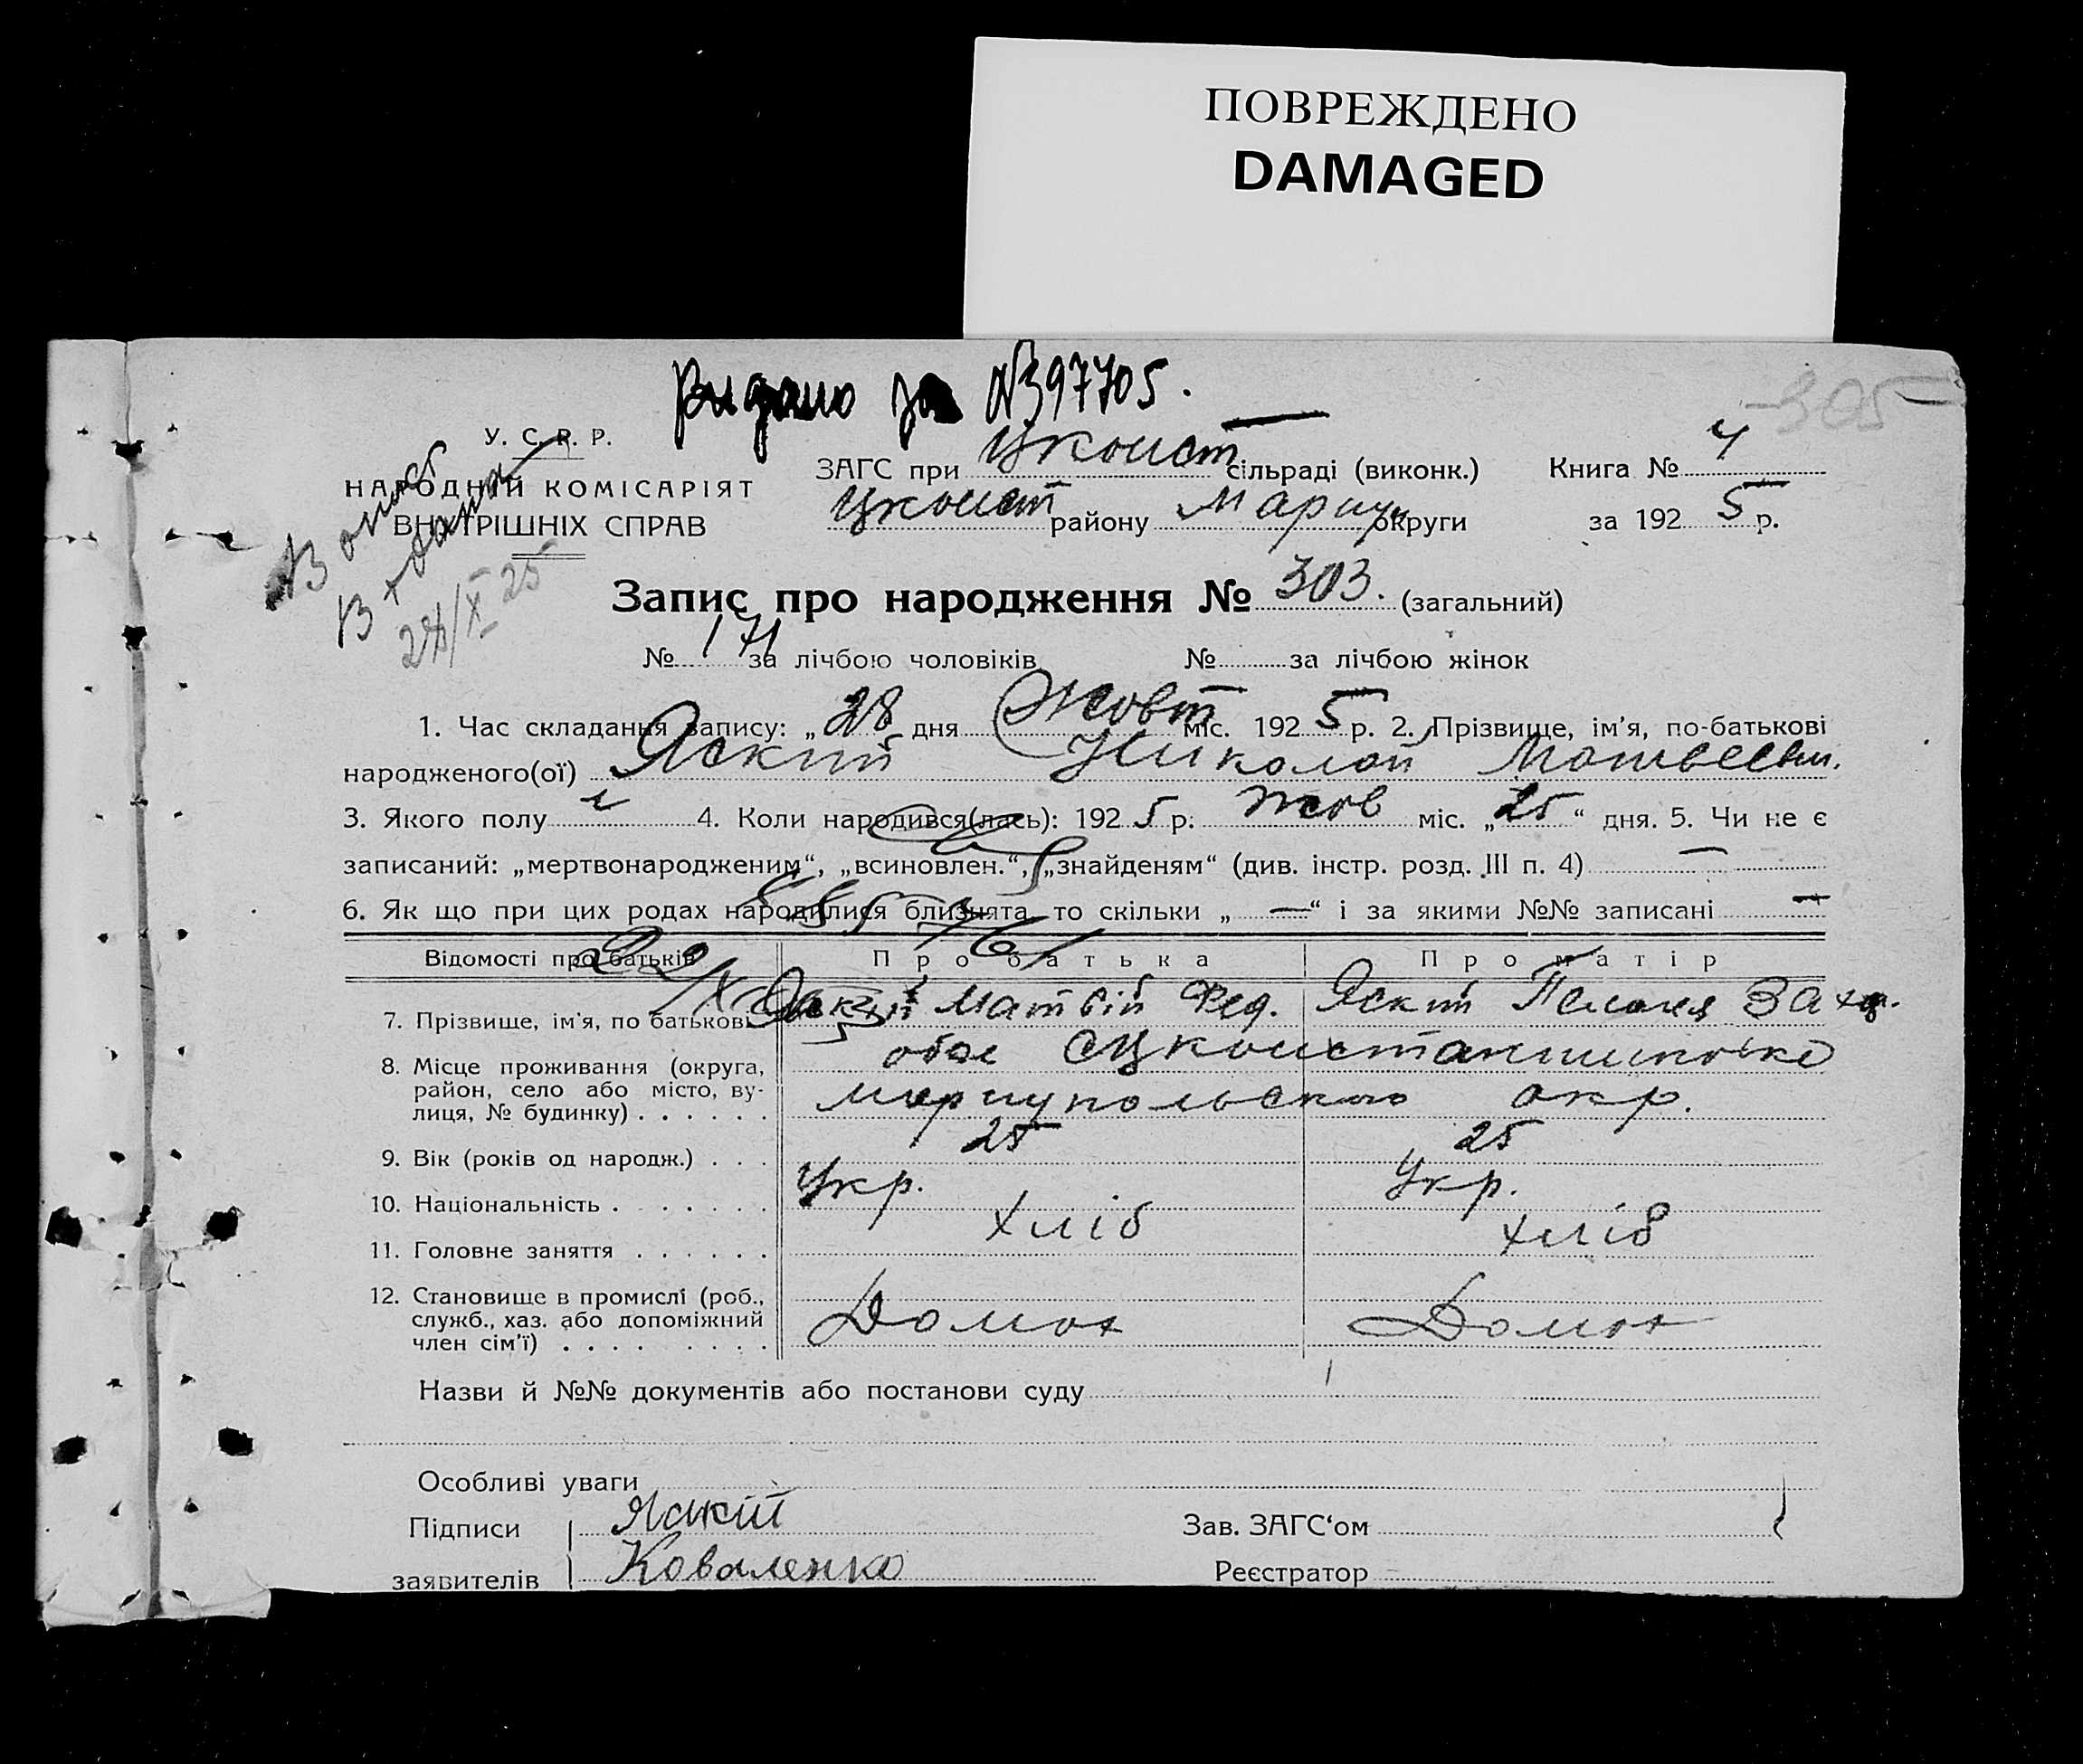 ПОВРЕЖДЕНО
DAMAGED
Видано за №397705.
305
У. С. Р. Р.
НАРОДНІЙ КОМІСАРІЯТ
ВНУТРІШНІХ СПРАВ
ЗАГС при Цконст сільраді (виконк.) Книга № 4
Цконст району Мариу округи за 1925 р.
Запис про народження № 303. (загальний)
№ 171 за лічбою чоловіків № за лічбою жінок
1. Час складання запису: „28 дня Жовт міс. 1925 р. 2. Прізвище, ім'я, по-батькові
народженого(ої) Яский Николай Матвеевич.
3. Якого полу ч 4. Коли народився(лась): 1925 р. Жов міс. „25“ дня. 5. Чи не є
записаний: „мертвонародженим“, „всиновлен.“, „знайденям“ (див. інстр. розд. III п. 4) —
6. Як що при цих родах народилися близнята, то скільки „—“ і за якими №№ записані —
Відомості про батьків Про батька Про матір
7. Прізвище, ім'я, по батькові Яский Матвій Фед. Яский Пелагея Зах.
8. Місце проживання (округа, район, село або місто, вулиця, № будинку) . . . . . . обое
мариупольского окр.
9. Вік (років од народж.) . . . 25 25
10. Національність . . . . . . Укр. Укр.
11. Головне заняття . . . . . . Хліб Хліб
12. Становище в промислі (роб., служб., хаз. або допоміжний член сім'ї) . . . . . . . . Домох Домох
Назви й №№ документів або постанови суду
Особливі уваги
Підписи Яский Зав. ЗАГС‘ом
заявителів Коваленко Реєстратор